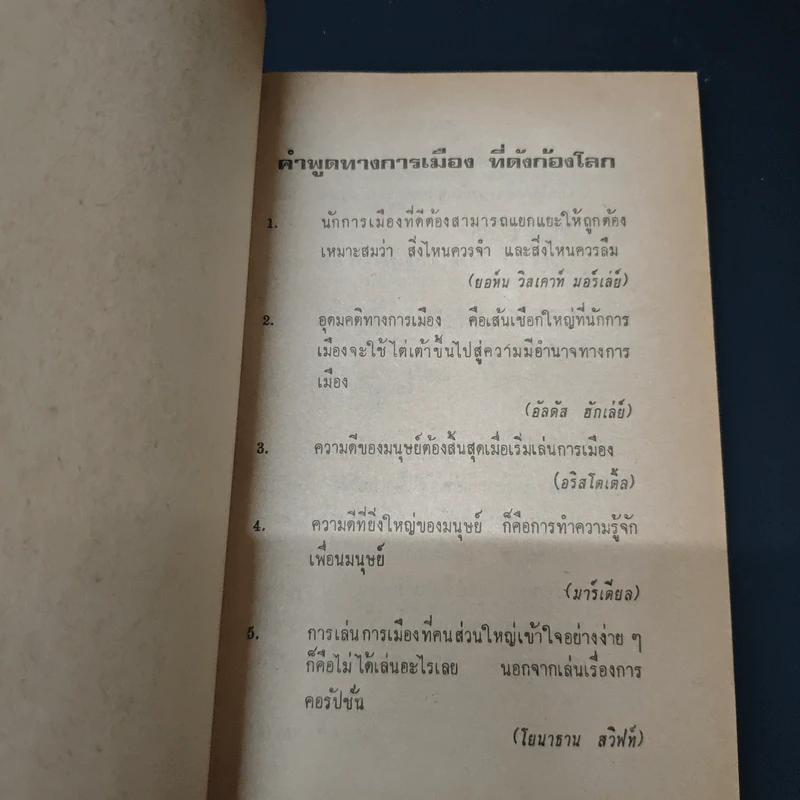 คำพูดทางการเมือง ที่ดังก้องโลก
1. นักการเมืองที่ดีต้องสามารถแยกแยะให้ถูกต้อง
เหมาะสมว่า สิ่งไหนควรจำ และสิ่งไหนควรลืม
(ยอห์น วิสเคาท์ มอร์เล่ย์)
2. อุดมคติทางการเมือง คือเส้นเชือกใหญ่ที่นักการ
เมืองจะใช้ไต่เต้าขึ้นไปสู่ความมีอำนาจทางการ
เมือง
(อัลดัส ฮักเล่ย์)
3. ความดีของมนุษย์ต้องสิ้นสุดเมื่อเริ่มเล่นการเมือง
(อริสโตเติ้ล)
4. ความดีที่ยิ่งใหญ่ของมนุษย์ ก็คือการทำความรู้จัก
เพื่อนมนุษย์
(มาร์เตียล)
5. การเล่นการเมืองที่คนส่วนใหญ่เข้าใจอย่างง่าย ๆ
ก็คือไม่ได้เล่นอะไรเลย นอกจากเล่นเรื่องการ
คอรัปชั่น
(โยนาธาน สวิฟท์)